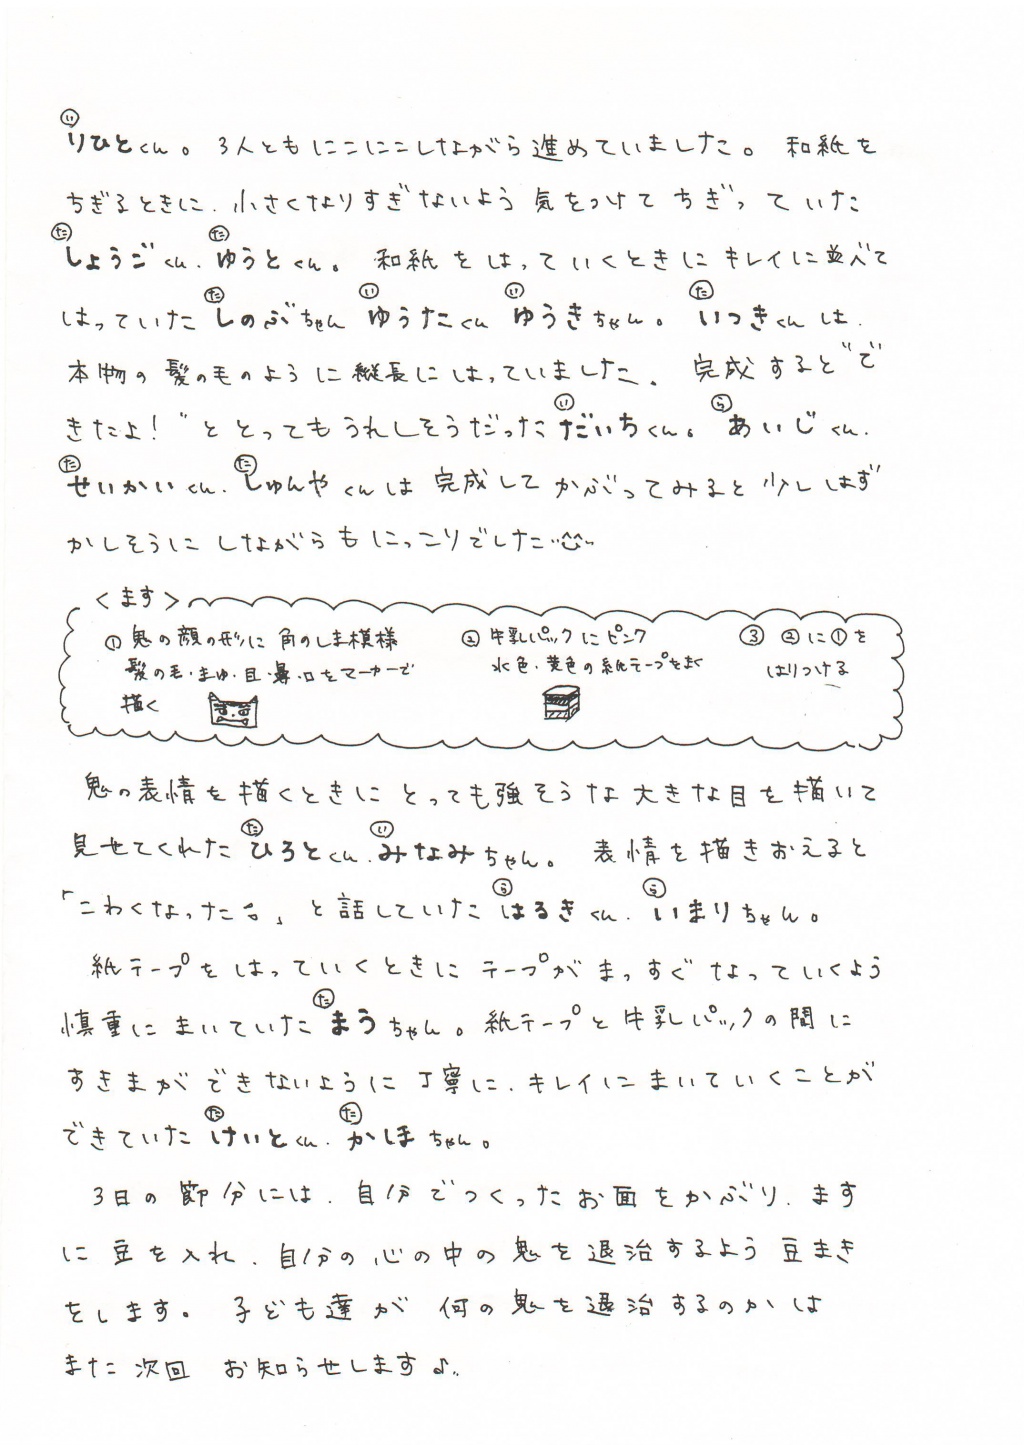 い
りひとくん。 3人ともにこにこしながら進めていました。 和紙を
ちぎるときに、小さくなりすぎないよう 気をつけて ちぎっていた
た た
しょうごくん、ゆうとくん。 和紙をはっていくときに キレイに並べて
た い い た
はっていた しのぶちゃん ゆうたくん ゆうきちゃん。 いつきくんは、
本物の髪の毛のように縦長にはっていました。 完成すると"で
い ら
きたよ!"ととってもうれしそうだった だいちくん。 あいじくん、
た た
せいかいくん、しゅんやくんは 完成して かぶってみると 少しはず
かしそうに しながらも にっこりでした
<ます>
① 鬼の顔の形に 角のしま模様
髪の毛・まゆ・目・鼻・口をマーカーで
描く
② 牛乳パックにピンク
水色・黄色の紙テープをまく
③ ②に①を
はりつける
鬼の表情を描くときに とっても強そうな 大きな目を描いて
た い
見せてくれた ひろとくん、みなみちゃん。 表情を描きおえると
う ら
「こわくなったよ。」と話していた はるきくん、いまりちゃん。
紙テープをはっていくときに テープがまっすぐなっていくよう
た
慎重にまいていた まうちゃん。紙テープと牛乳パックの間に
すきまができないように 丁寧に、キレイにまいていくことが
た た
できていた けいとくん、かほちゃん。
3日の節分には、自分でつくったお面をかぶり、ます
に豆を入れ、自分の心の中の鬼を退治するよう 豆まき
をします。 子ども達が 何の鬼を退治するのかは
また次回 お知らせします♪